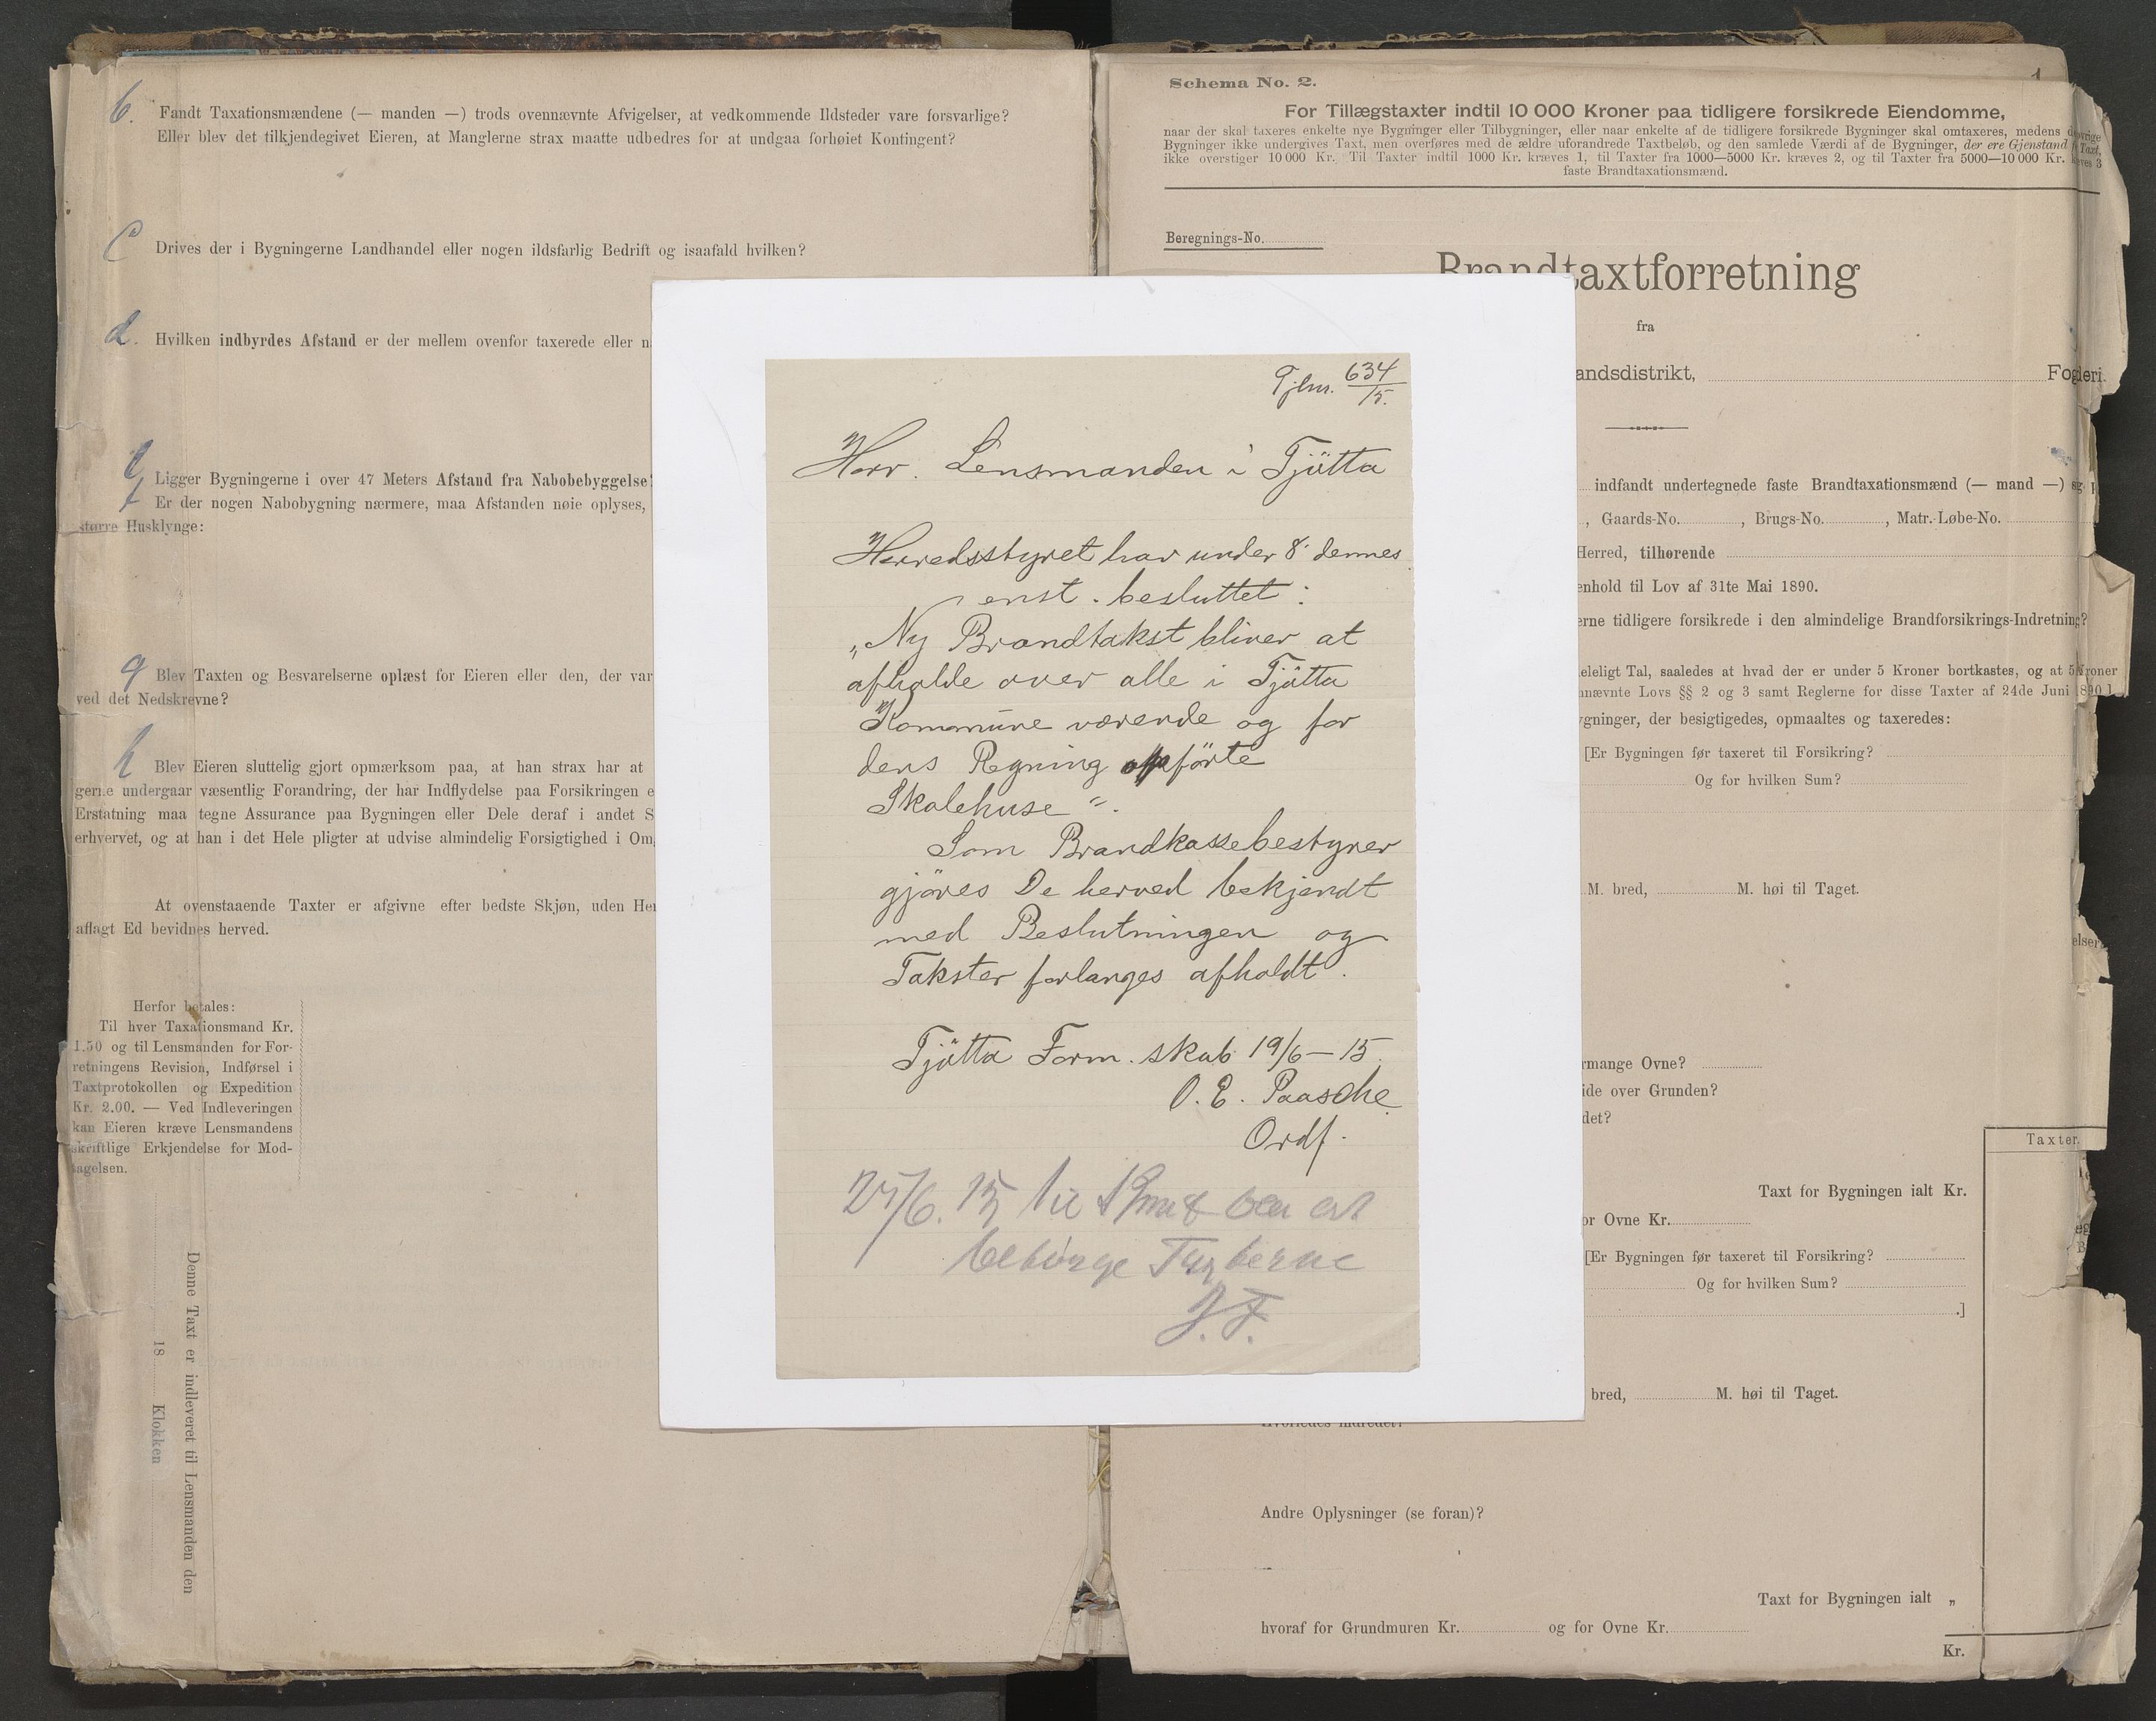 b.
Fandt Taxationsmændene (— manden —) trods ovennævnte Afvigelser, at vedkommende Ildsteder vare forsvarlige?
Eller blev det tilkjendegivet Eieren, at Manglerne strax maatte udbedres for at undgaa forhøiet Kontingent?
c
Drives der i Bygningerne Landhandel eller nogen ildsfarlig Bedrift og isaafald hvilken?
d.
Hvilken indbyrdes Afstand er der mellem ovenfor taxerede eller n
Ligger Bygningerne i over 47 Meters Afstand fra Nabobebyggelse?
f
Er der nogen Nabobygning nærmere, maa Afstanden nøie oplyses,
større Husklynge:
g
Blev Taxten og Besvarelserne oplæst for Eieren eller den, der var
ved det Nedskrevne?
h
Blev Eieren sluttelig gjort opmærksom paa, at han strax har at
gerne undergaar væsentlig Forandring, der har Indflydelse paa Forsikringen e
Erstatning maa tegne Assurance paa Bygningen eller Dele deraf i andet S
erhvervet, og at han i det Hele pligter at udvise almindelig Forsigtighed i Om
At ovenstaaende Taxter er afgivne efter bedste Skjøn, uden He
aflagt Ed bevidnes herved.
Herfor betales:
Til hver Taxationsmand Kr.
1.50 og til Lensmanden for For-
retningens Revision, Indførsel i
Taxtprotokollen og Expedition
Kr. 2.00. — Ved Indleveringen
kan Eieren kræve Lensmandens
skriftlige Erkjendelse for Mod-
tagelsen.
Denne Taxt er indleveret til Lensmanden den
18 Klokken
Gjlnr. 634/15.
Herr. Lensmanden i Tjötta
Herredsstyret har under 8' dennes
enst. besluttet:
„Ny Brandtakst bliver at
afholde over alle i Tjötta
Kommune værende og for
dens Regning opförte
Skolehuse".
Som Brandkassebestyrer
gjöres De herved bekjendt
med Beslutningen og
Takster forlanges afholdt.
Tjötta Form.skab 19/6—15.
O. E. Paasche
Ordf.
25/6. 15
J. F.
Schema No. 2.
1
For Tillægstaxter indtil 10 000 Kroner paa tidligere forsikrede Eiendomme,
naar der skal taxeres enkelte nye Bygninger eller Tilbygninger, eller naar enkelte af de tidligere forsikrede Bygninger skal omtaxeres, medens de øvrige
Bygninger ikke undergives Taxt, men overføres med de ældre uforandrede Taxtbeløb, og den samlede Værdi af de Bygninger, der ere Gjenstand f Taxt,
ikke overstiger 10 000 Kr. Til Taxter indtil 1000 Kr. kræves 1, til Taxter fra 1000—5000 Kr. kræves 2, og til Taxter fra 5000—10 000 Kr. kræves 3
faste Brandtaxationsmænd.
Beregnings-No.
Brandtaxtforretning
fra
andsdistrikt, Fogderi.
indfandt undertegnede faste Brandtaxationsmænd (— mand —) sig
, Gaards-No. , Brugs-No. , Matr.-Løbe-No.
Herred, tilhørende
enhold til Lov af 31te Mai 1890.
erne tidligere forsikrede i den almindelige Brandforsikrings-Indretning?
eleligt Tal, saaledes at hvad der er under 5 Kroner bortkastes, og at 5 Kroner
nnævnte Lovs §§ 2 og 3 samt Reglerne for disse Taxter af 24de Juni 1890].
ygninger, der besigtigedes, opmaaltes og taxeredes:
[Er Bygningen før taxeret til Forsikring?
Og for hvilken Sum?
M. bred, M. høi til Taget.
elser
rmange Ovne?
ide over Grunden?
det?
Taxter.
Taxt for Bygningen ialt Kr.
or Ovne Kr.
[Er Bygningen før taxeret til Forsikring?
Og for hvilken Sum?
.]
bred, M. høi til Taget.
Hvorledes indredet?
Andre Oplysninger (se foran)?
Taxt for Bygningen ialt „
hvoraf for Grundmuren Kr. og for Ovne Kr.
Kr.